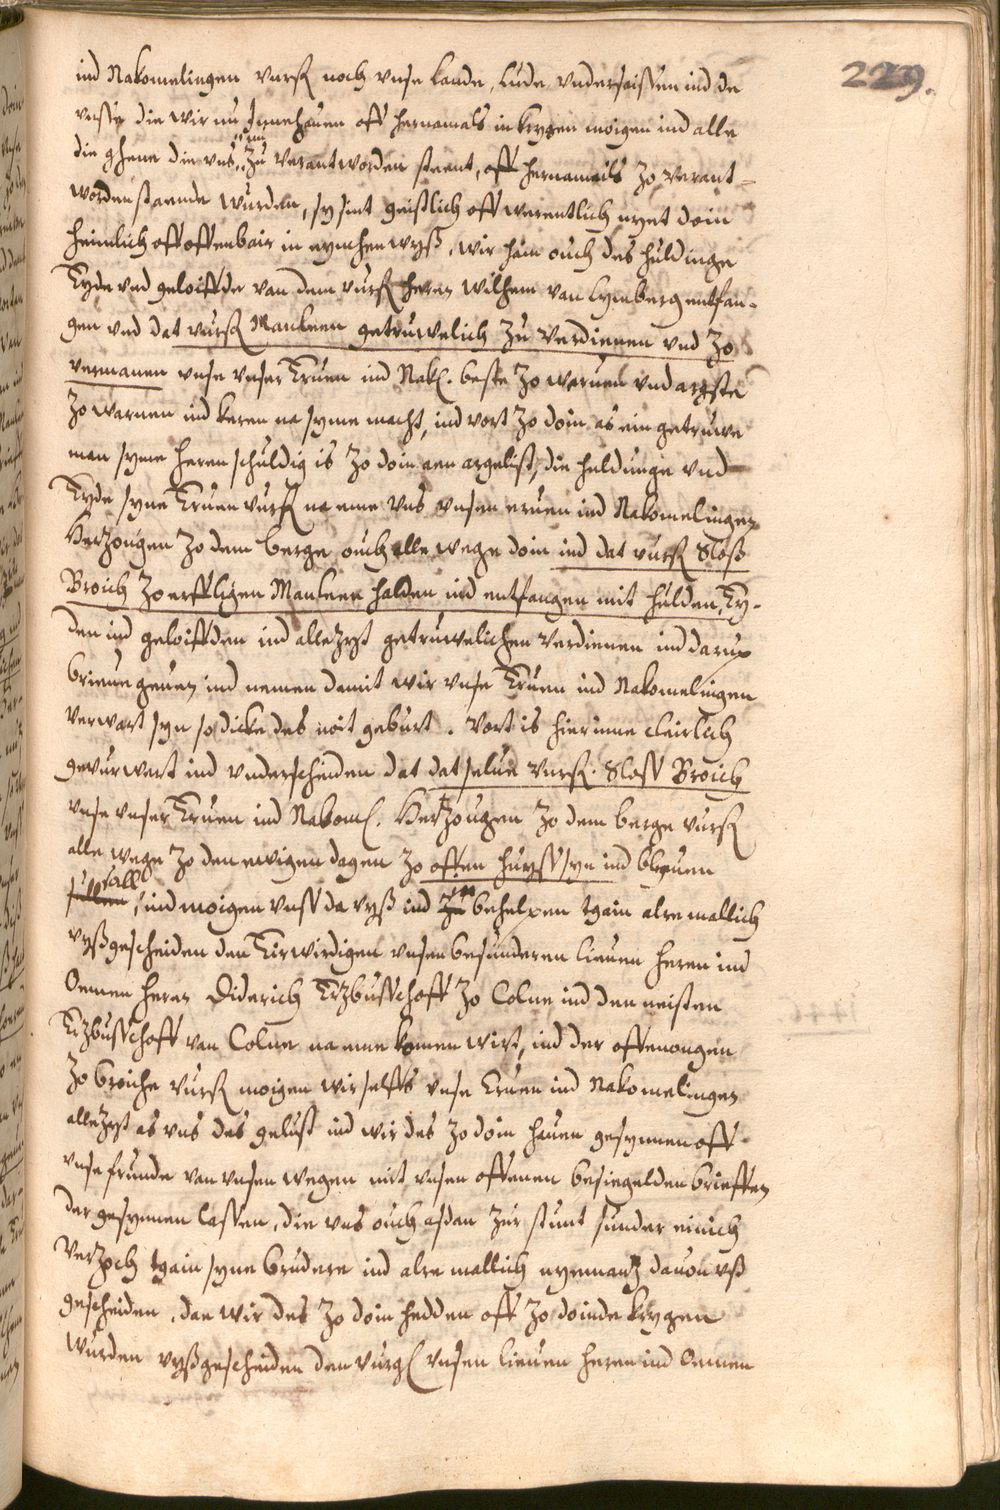 229.
ind Nakomelingen vurß noch vnse Lande, Lude vndersaissen ind de
vnsse die wir nu Innehauen off hernamals in krygen moigen ind alle
die ghene die vns nu zu verantworden steent, off hernamails zo verant-
worden staende wurden, sy sint geistlich off werentlich nyet doin
heimlich off offenbair in eynchen wyß, wir hain ouch des huldinge
Eyde vnd geloiffde van dem vurß heren Wilhem van Lymberg entfan-
gen vnd dat vurß Manleen getruwelich zu verdienen vnd zo
vermanen vnse vnser Eruen ind Nak. beste zo weruen vnd argste
zo warnen ind keren na syme macht, ind vort zo doin as ein getruwe
man syme heren schuldig is zo doin aen argelist, die huldunge vnd
Eyde syne Eruen vurß na eme vns vnsen eruen ind Nakomelingen
Hertzougen zo dem Berge ouch alle wege doin ind dat vurß Sloß
Broich zo erffligen Manleen halden ind entfangen mit hulden, Ey-
den ind geloiffden ind allezyt getruwelichen verdienen ind darup
brieue geuen ind nemen damit wir vnse Eruen ind Nakomelingen
verwart syn so dicke des noit geburt. Vort is hierinne clerlich
gevurwart ind vnderscheiden dat dat selue vurß. Sloss Broich
vnse vnser Eruen ind Nakom. Hertzougen zo dem Berge vurß
alle wege zo den ewigen dagen zo offen huyss syn ind blyuen
sullen sall, ind moigen vnss da vyß ind zu in behelpen tgain alre mallich
vyßgescheiden den Eirwirdigen vnsen besunderen lieuen heren ind
Oemen heren Diderich Ertzbusschoff zo Colne ind den neisten
Ertzbusschoff van Colne na eme komen wirt, ind der offenongen
zo broiche vurß moigen wir selffs vnse Eruen ind Nakomelingen
allezyt as vns des gelust ind wir des zo doin hauen gesynnen off
vnse frunde van vnsen wegen mit vnsen offenen besiegelden brieffen
der gesynnen lassen, die vns ouch asdan zur stunt sunder einich
vertzoch tgain syne brudere ind alre mallich nyemantz dauon vß
gescheiden, dae wir des zo doin hedden off zo doinde krygen
wurden vyßgescheiden den vurg. vnsen lieuen heren ind Oemen